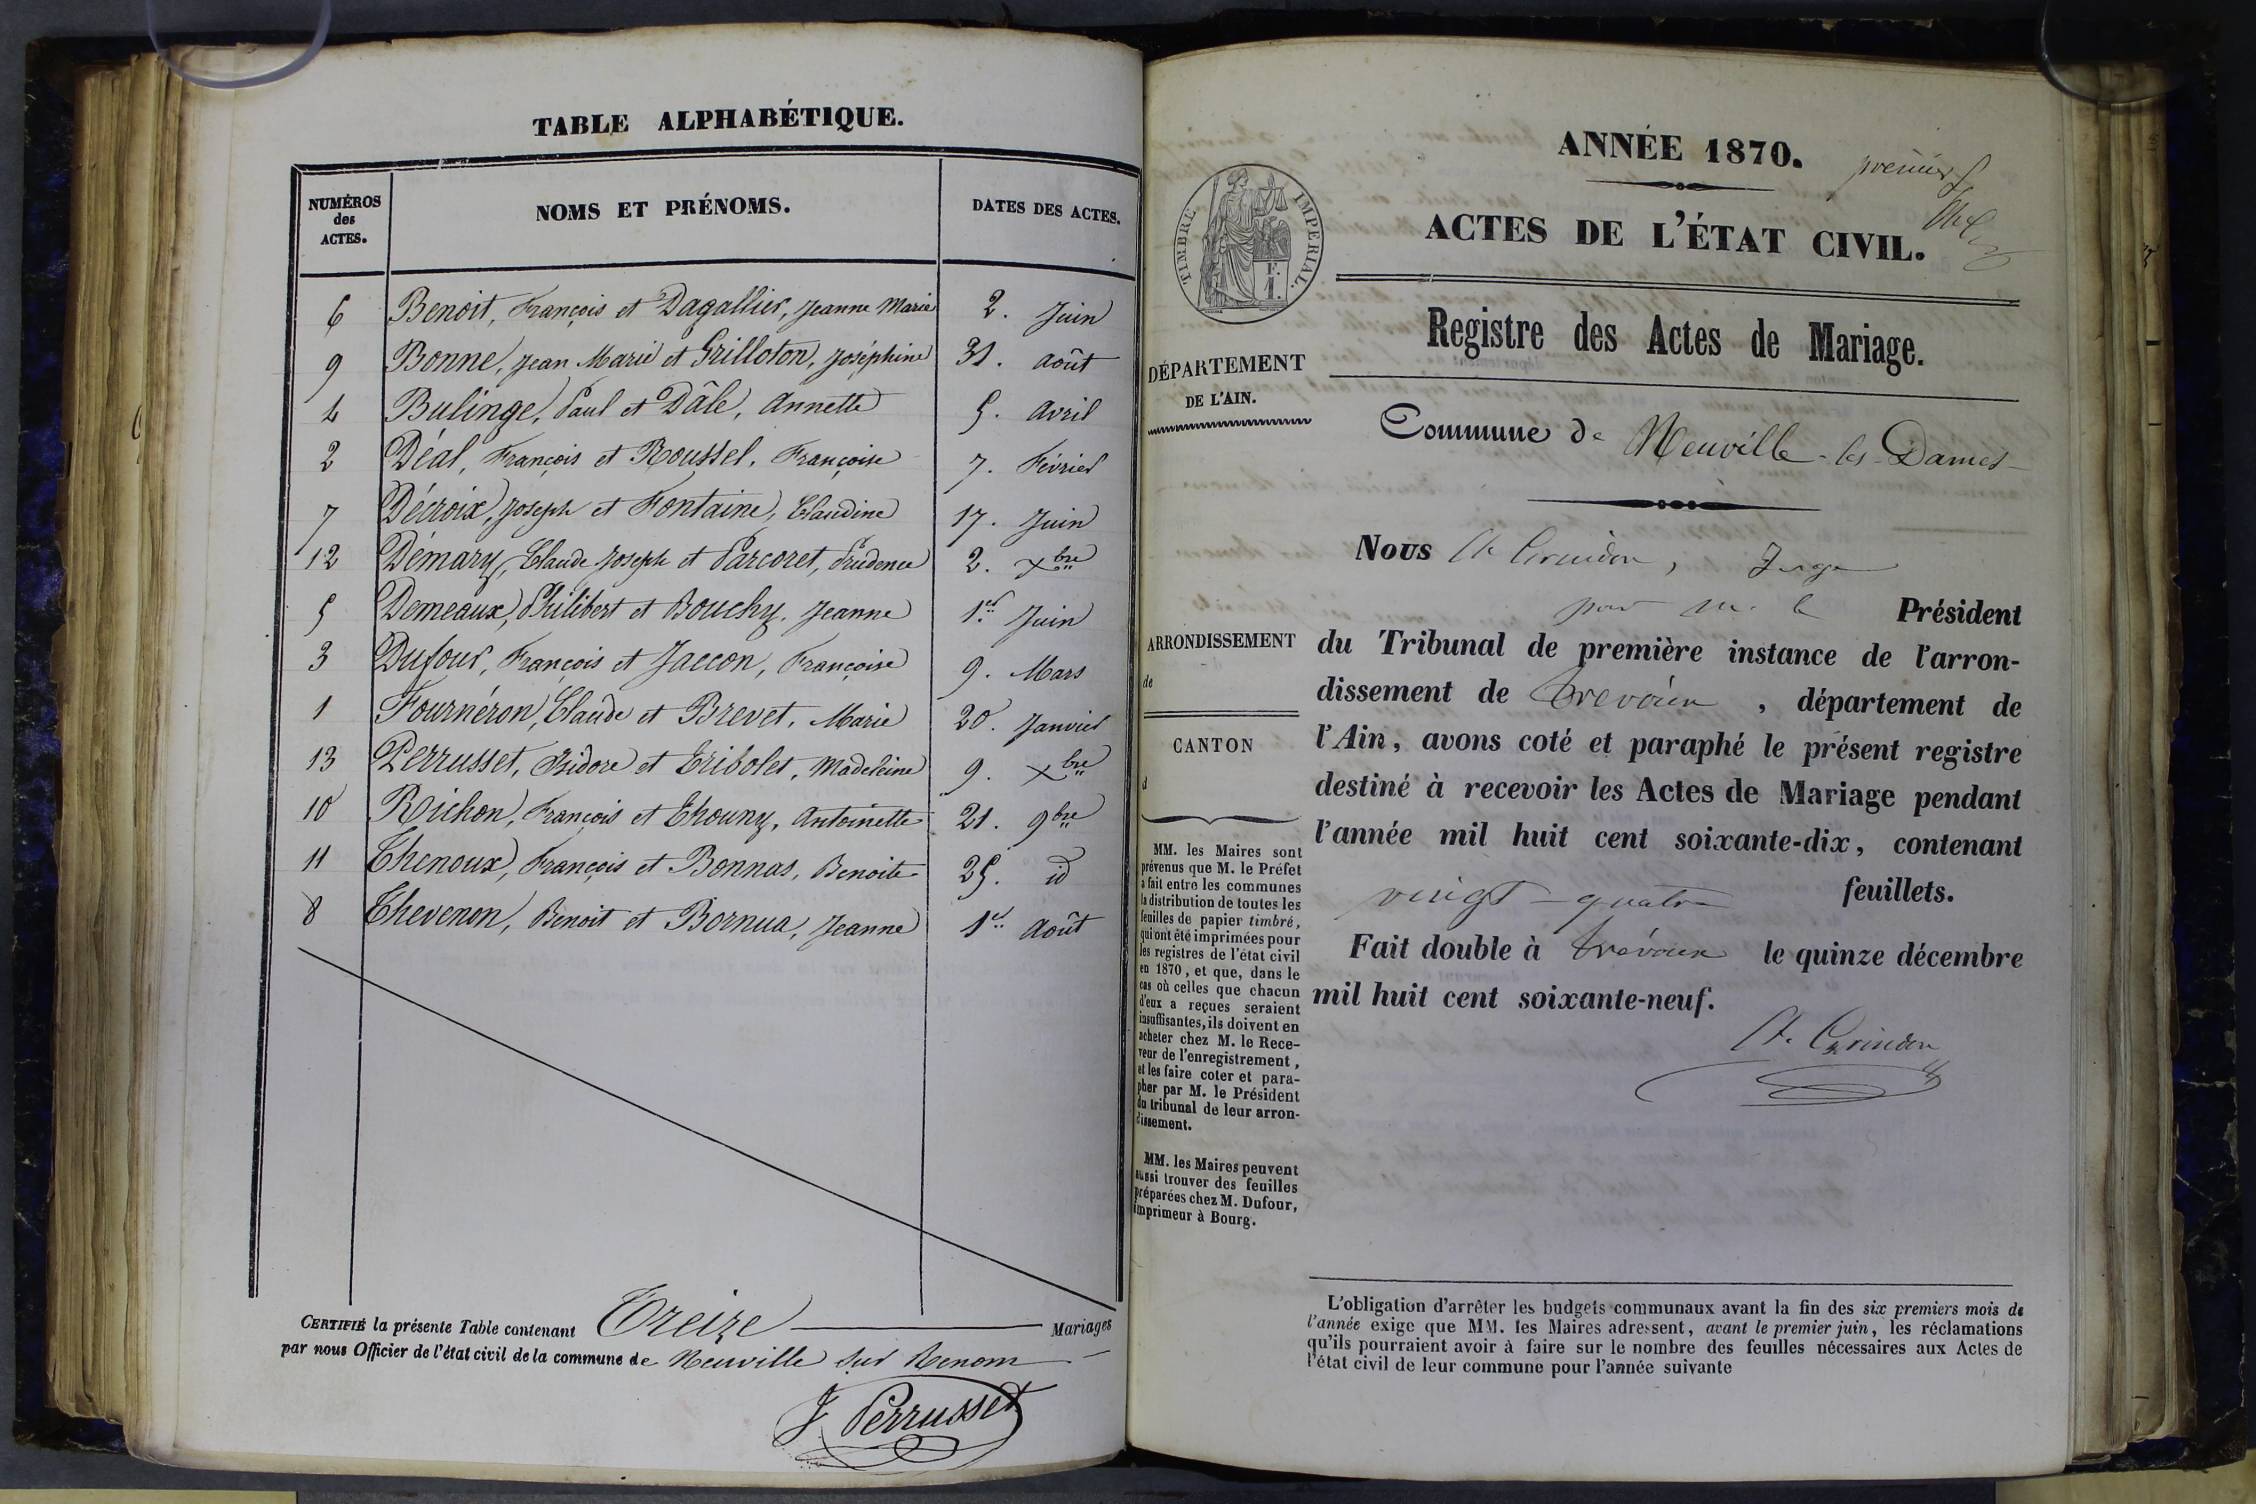 TABLE ALPHABÉTIQUE.
NUMÉROS
des
ACTES.
NOMS ET PRÉNOMS.
DATES DES ACTES.
6 Benoit, François et Dagallier, Jeanne Marie 2. Juin
9 Bonne, Jean Marie et Grilloton, Joséphine 31. Août
4 Bulinge, Paul et Dâle, Annette 5. Avril
2 Déal, François et Roussel, Françoise 7. Février
7 Décroix, Joseph et Fontaine, Claudine 17. Juin
12 Démary, Claude Joseph et Parcoret, Prudence 2. Xbre
5 Demeaux, Philibert et Bouchy, Jeanne 1er Juin
3 Dufour, François et Jaccon, Françoise 9. Mars
1 Fournéron, Claude et Brevet, Marie 20. Janvier
13 Perrusset, Isidore et Tribolet, Madeleine 9. Xbre
10 Richon, François et Chouny, Antoinette 21. 9bre
11 Thenoux, François et Bonnas, Benoite 25. id
8 Thevenon, Benoit et Bornua, Jeanne 1er Août
CERTIFIÉ la présente Table contenant Treize Mariages
par nous Officier de l'état civil de la commune de Neuville sur Renom
J Perrusset
ANNÉE 1870.
premier
ACTES DE L'ÉTAT CIVIL.
TIMBRE IMPÉRIAL.
Registre des Actes de Mariage.
DÉPARTEMENT
DE L'AIN.
Commune de Neuville-les-Dames
ARRONDISSEMENT
de
CANTON
d
MM. les Maires sont
prévenus que M. le Préfet
a fait entre les communes
la distribution de toutes les
feuilles de papier timbré,
qui ont été imprimées pour
les registres de l'état civil
en 1870, et que, dans le
cas où celles que chacun
d'eux a reçues seraient
insuffisantes, ils doivent en
acheter chez M. le Rece-
veur de l'enregistrement,
et les faire coter et para-
pher par M. le Président
du tribunal de leur arron-
dissement.
MM. les Maires peuvent
aussi trouver des feuilles
préparées chez M. Dufour,
imprimeur à Bourg.
Nous Juge
pour M. le Président
du Tribunal de première instance de l'arron-
dissement de Trévoux, département de
l'Ain, avons coté et paraphé le présent registre
destiné à recevoir les Actes de Mariage pendant
l'année mil huit cent soixante-dix, contenant
vingt-quatre feuillets.
Fait double à Trévoux le quinze décembre
mil huit cent soixante-neuf.
L'obligation d'arrêter les budgets communaux avant la fin des six premiers mois de
l'année exige que MM. les Maires adressent, avant le premier juin, les réclamations
qu'ils pourraient avoir à faire sur le nombre des feuilles nécessaires aux Actes de
l'état civil de leur commune pour l'année suivante